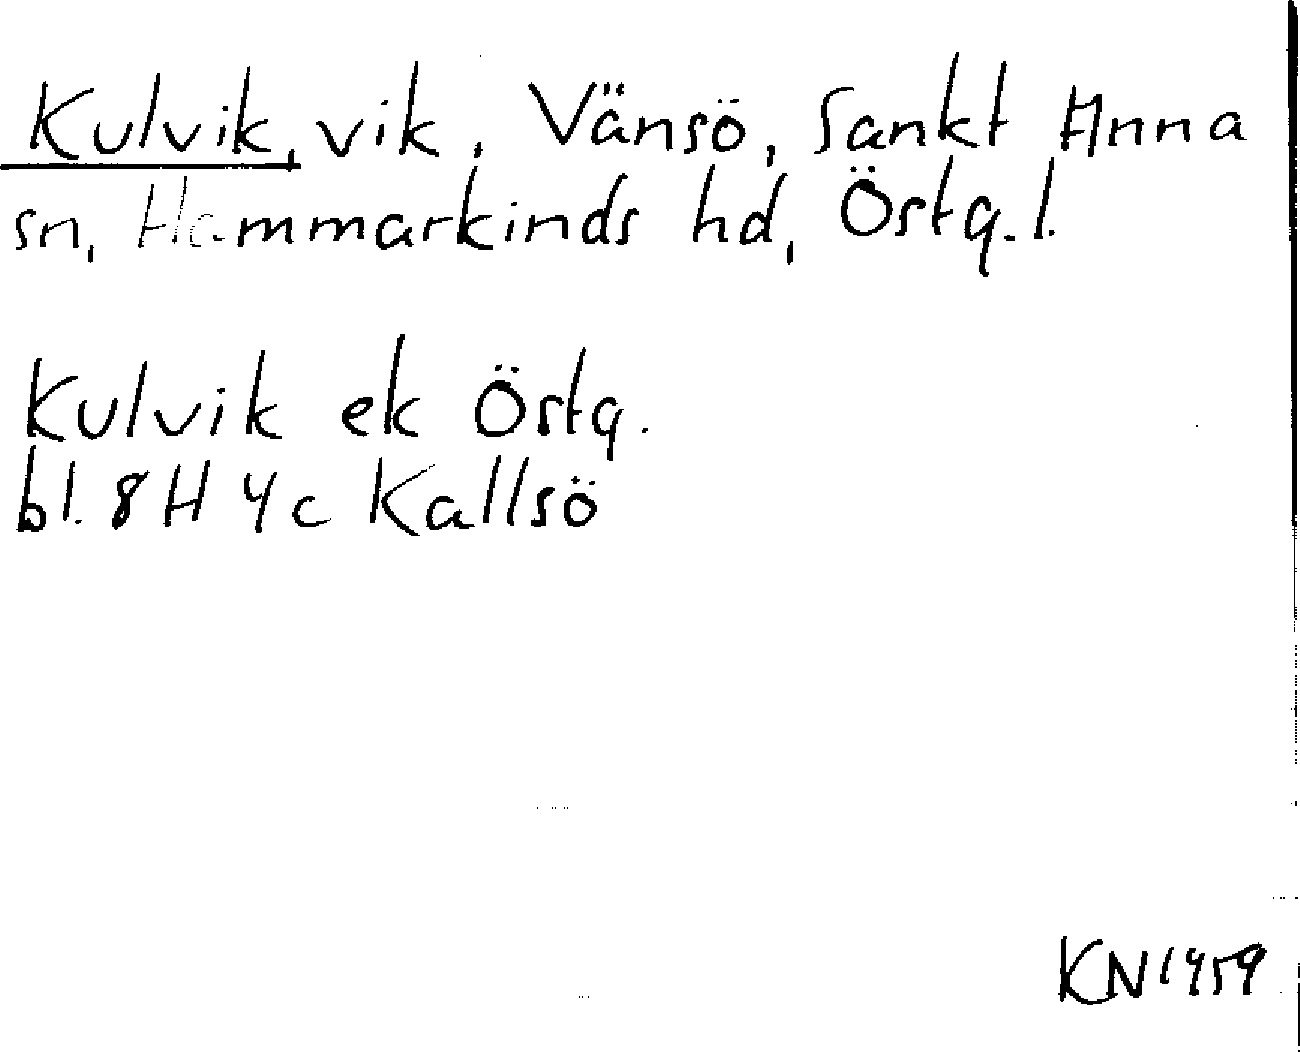 Kulvik, vik, Vänsö, Sankt Anna
sn, Hammarkinds hd, Östg.l.
Kulvik ek Östg.
bl. 8H 4c Kallsö
KN 1959